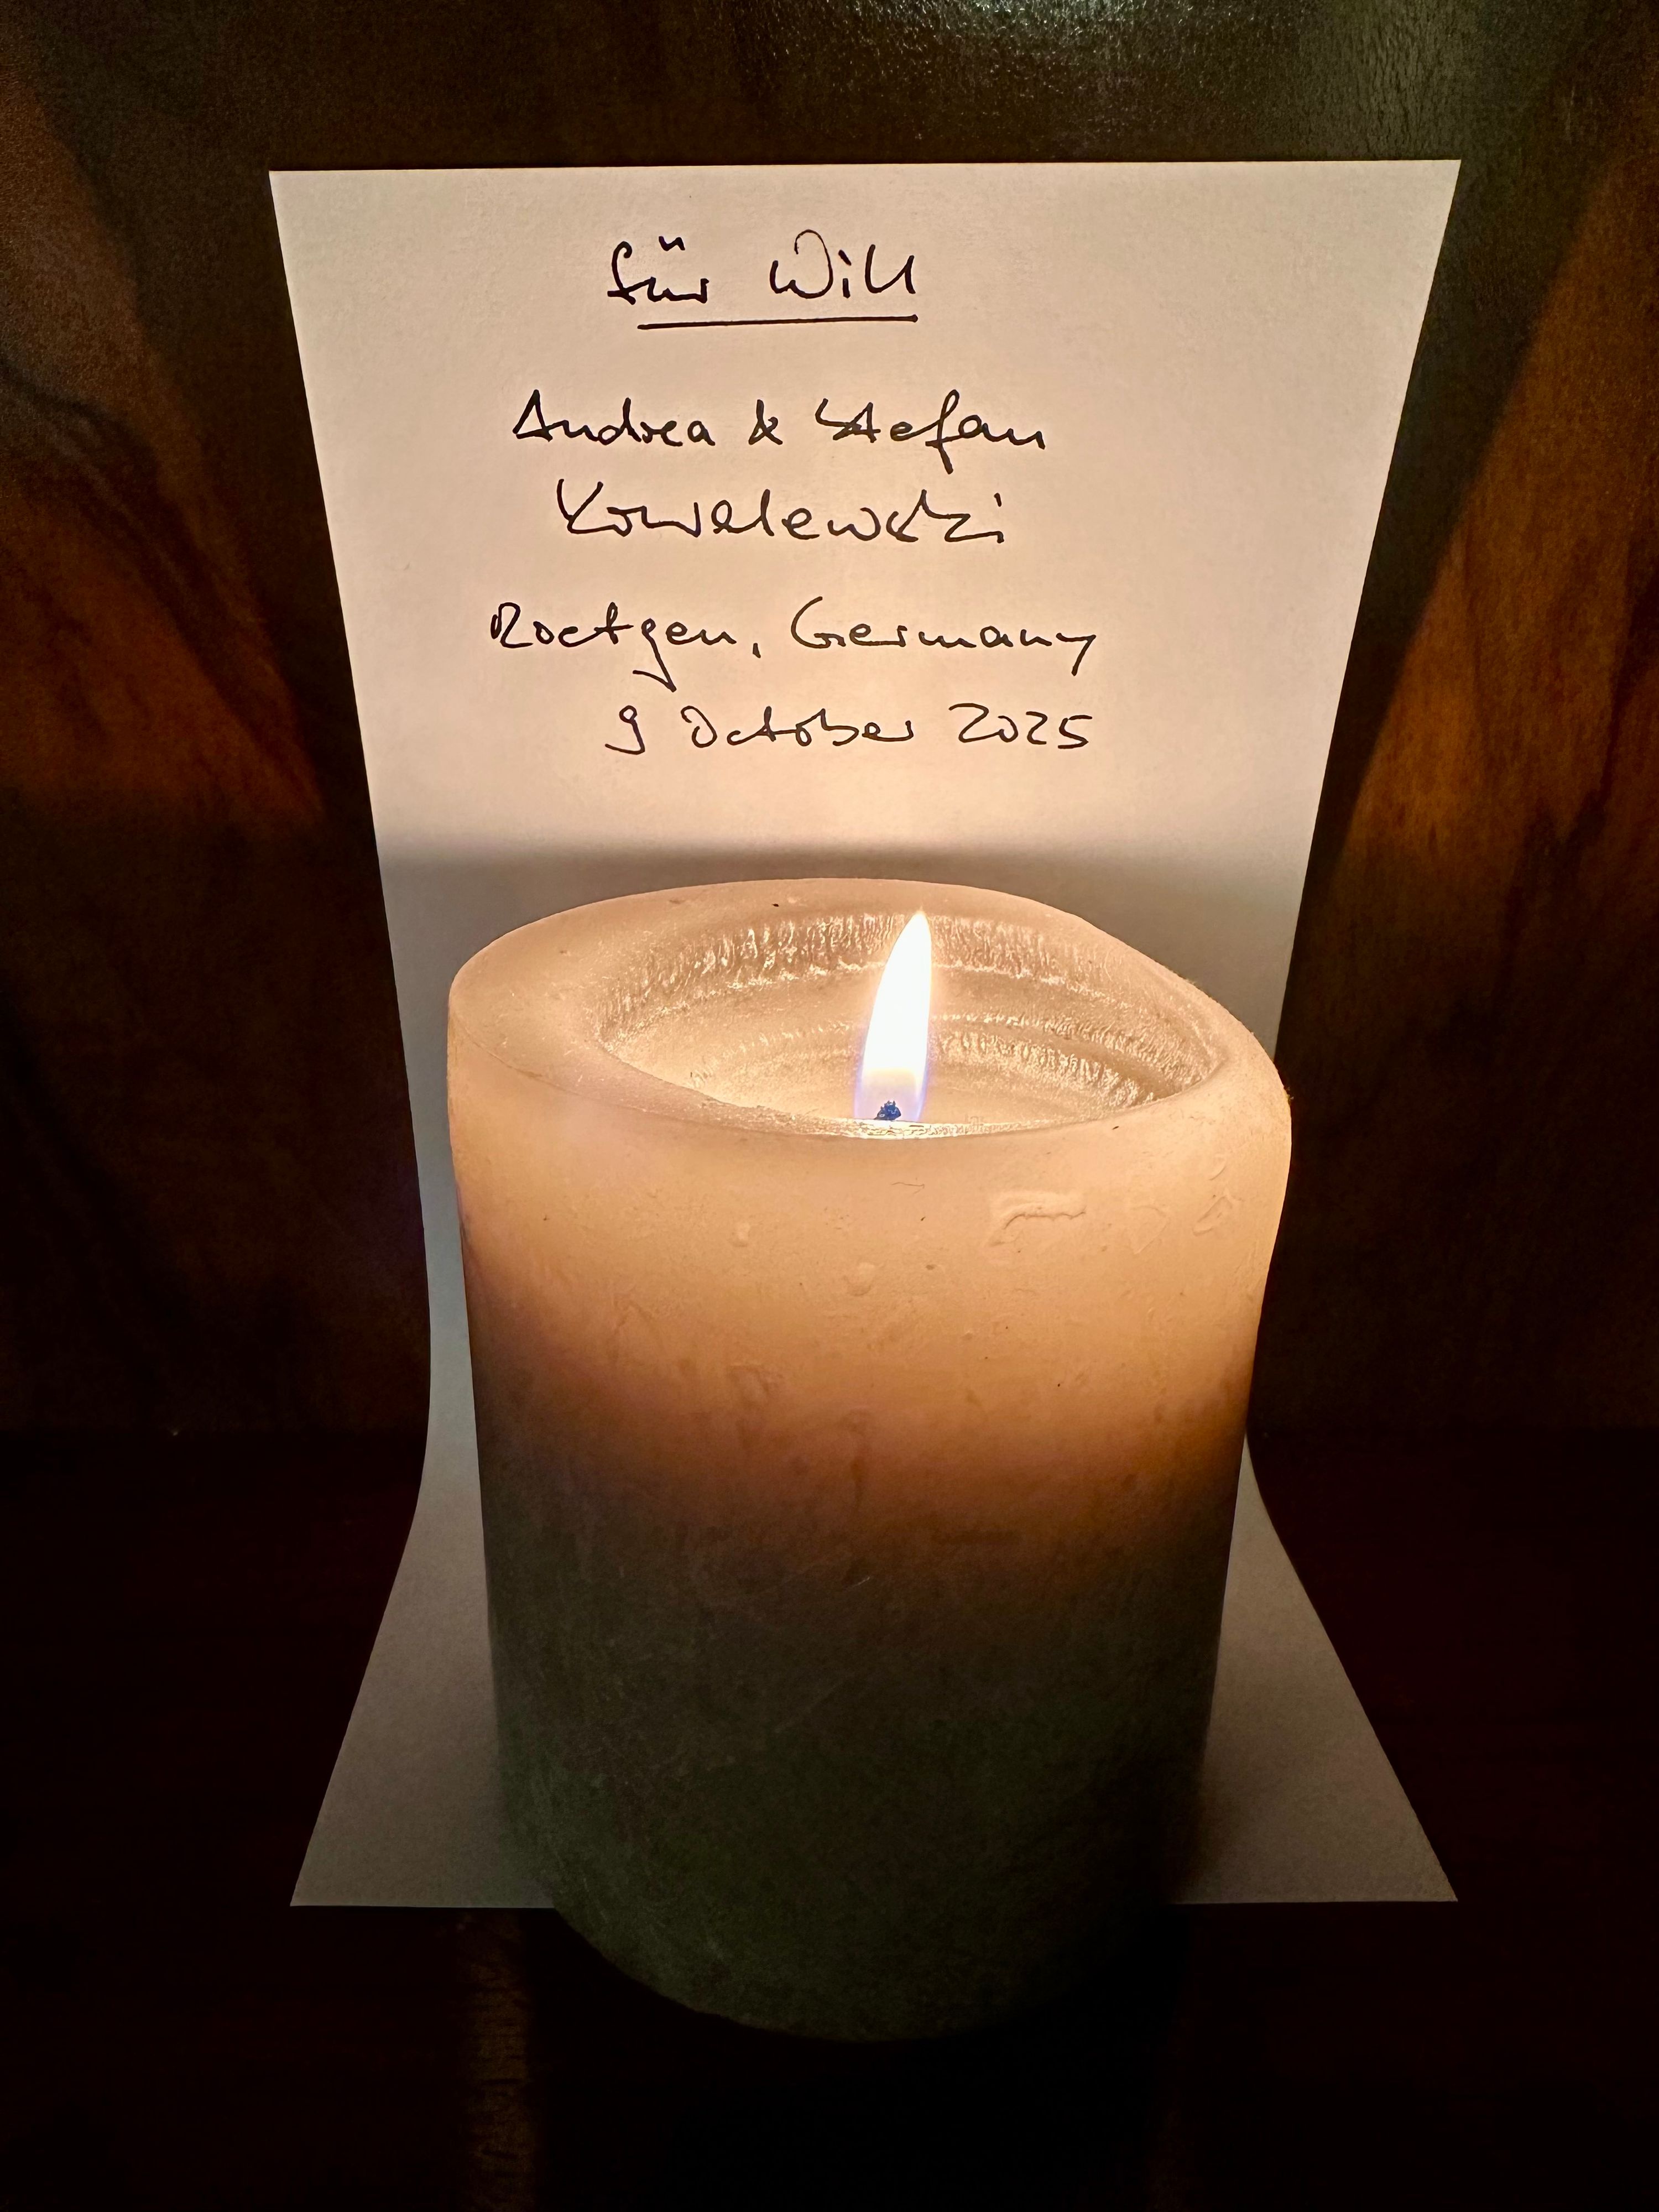 für Will
Andrea & Stefan
Kowalewski
Roetgen, Germany
9 October 2025